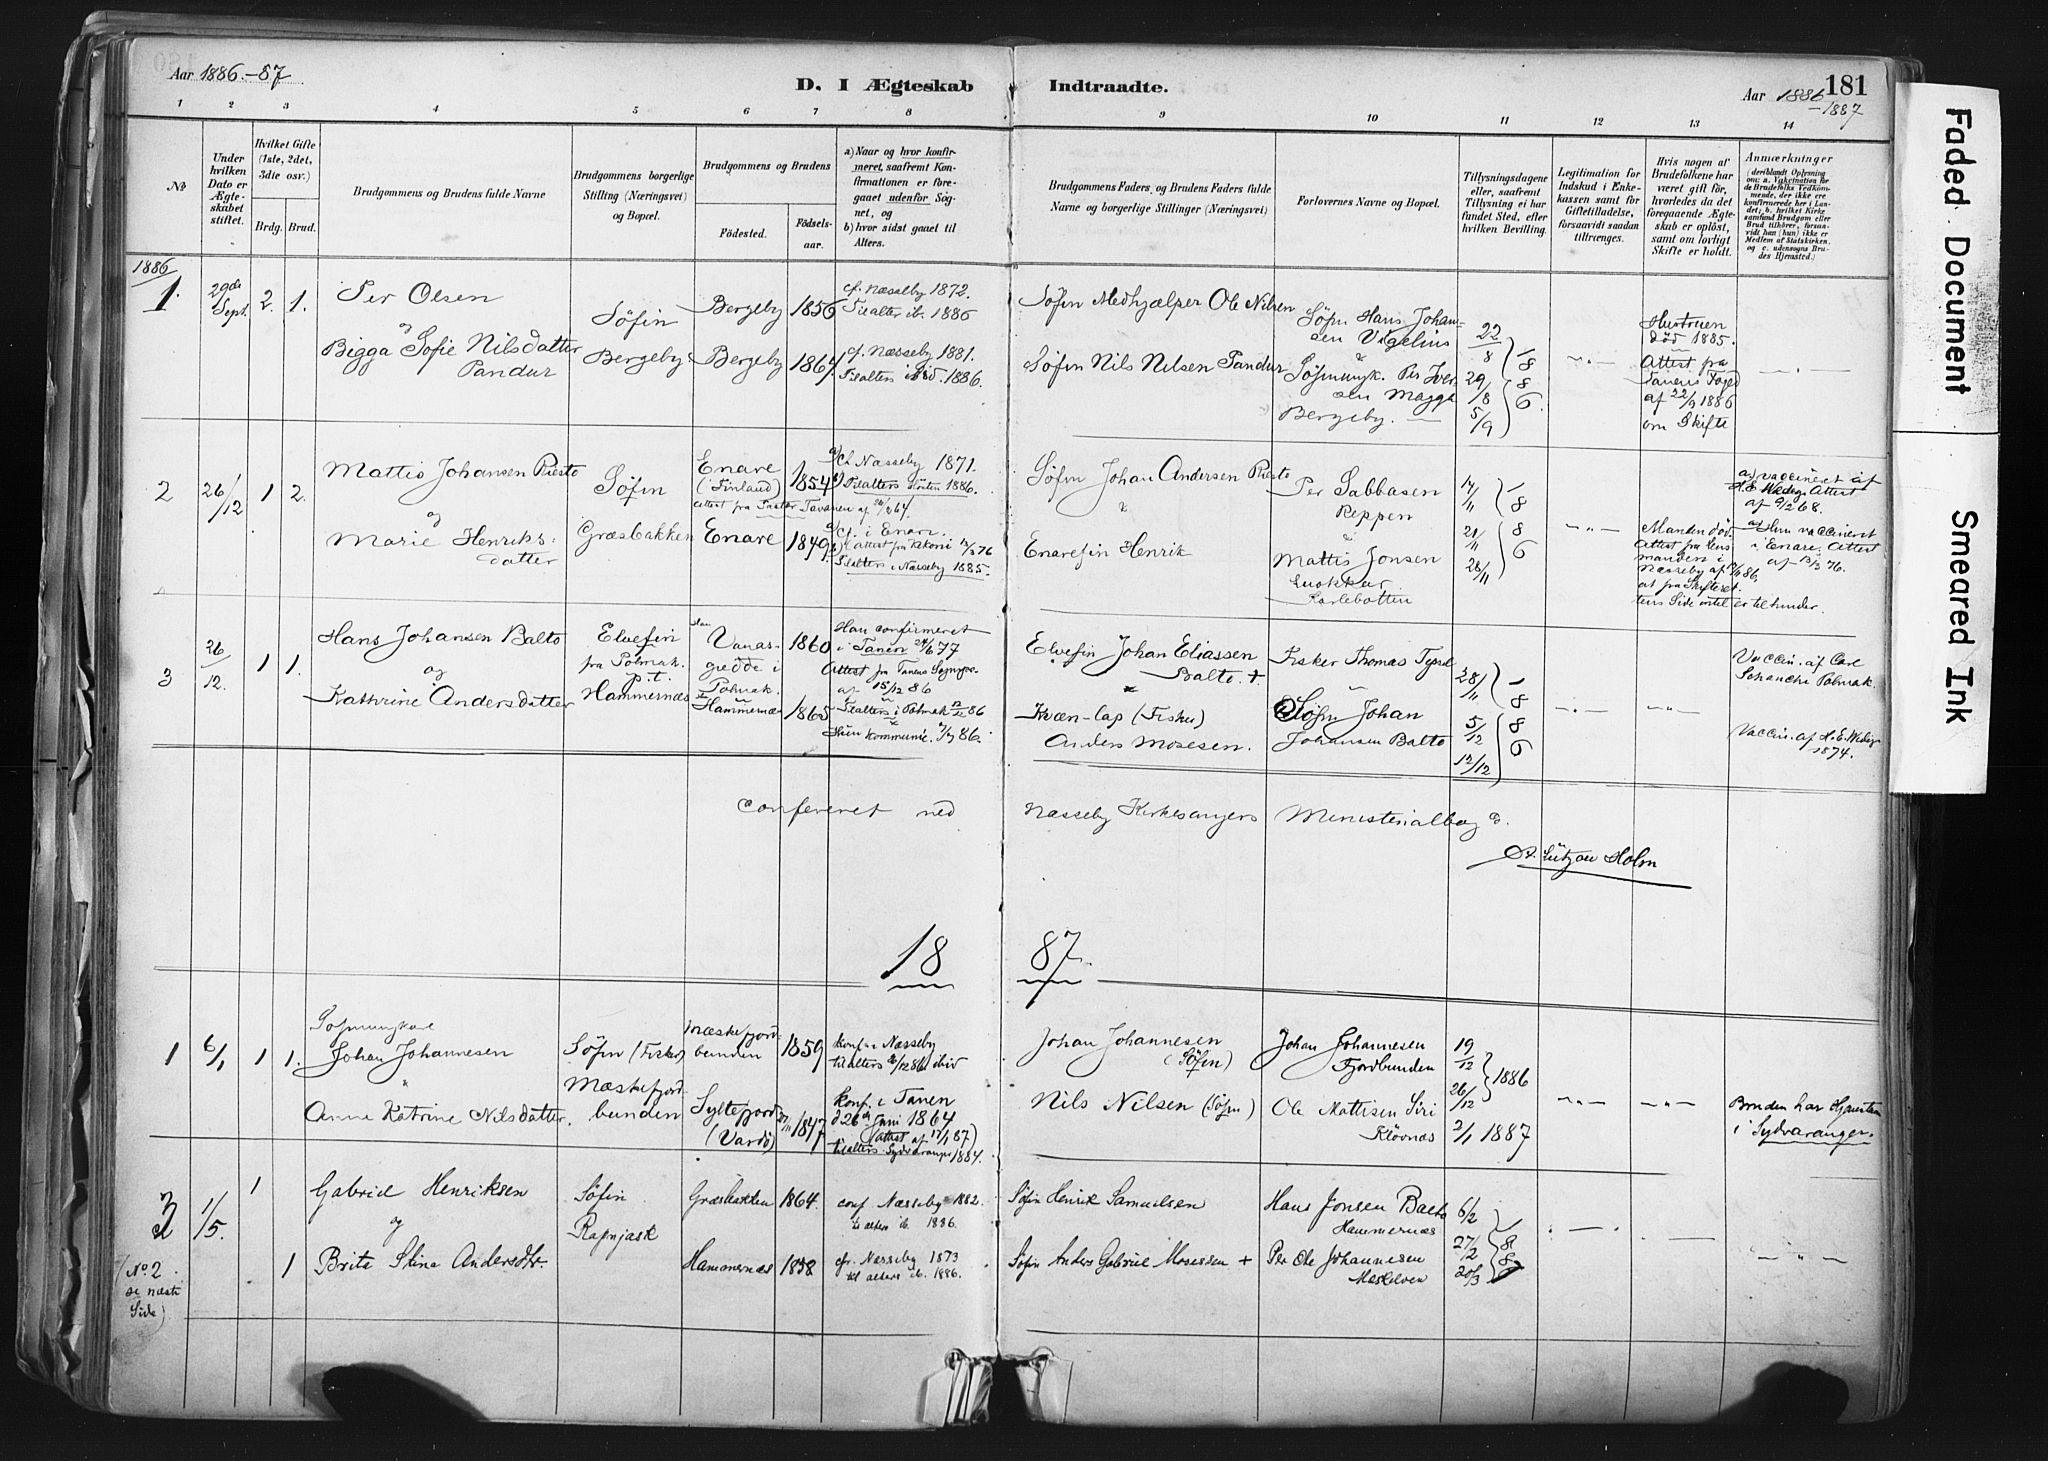 Aar 1886.-87
D. I Ægteskab Indtraadte.
Aar 1886
-1887
181
1 2 3 4 5 6 7 8 9 10 11 12 13 14
No
Under hvilken Dato er Ægteskabet stiftet.
Hvilket Gifte (1ste, 2det, 3die osv.)
Brdg. Brud.
Brudgommens og Brudens fulde Navne
Brudgommens borgerlige Stilling (Næringsvei) og Bopæl.
Brudgommens og Brudens
Fødested. Fødselsaar.
a) Naar og hvor konfirmeret, saafremt Konfirmationen er foregaaet udenfor Sognet, og
b) hvor sidst gaaet til Alters.
Brudgommens Faders og Brudens Faders fulde Navne og borgerlige Stillinger (Næringsvei)
Forlovernes Navne og Bopæl.
Tillysningsdagene eller, saafremt Tillysning ei har fundet Sted, efter hvilken Bevilling.
Legitimation for Indskud i Enkekassen samt for Giftetilladelse, forsaavidt saadan tiltrænges.
Hvis nogen af Brudefolkene har været gift før, hvorledes da det foregaaende Ægteskab er opløst, samt om lovligt Skifte er holdt.
Anmærkninger
(deriblandt Oplysning om: a. Vakcination for de Brudefolks Vedkommende, der ikke ere konfirmerede her i Landet; b. hvilket Kirkesamfund Brudgom eller Brud tilhører, forsaavidt han (hun) ikke er Medlem af Statskirken, og c. udensogns Brudes Hjemsted.)
1886
1.
29de Sept.
2. 1.
Per Olsen
og
Bigga Sofie Nilsdatter
Pandur
Søfin
Bergeby
Bergeby 1856
Bergeby 1867.
cf. Næsseby 1872.
Tilalters ib. 1886
cf. Næsseby 1881.
Tilalters ibid. 1886.
Søfin Medhjælper Ole Nilsen
Søfin Nils Nilsen Pandur
Søfn Hans Johansen Vigelius
&
Per Iversen Magga
Bergeby.
22/8
29/8
5/9
1886.
Hustruen død 1885.
Attest fra Tanens Foged af 22/9 1886 om Skifte
2
26/12
1 2.
Mattis Johansen Riesto
og
Marie Henriksdatter
Søfin
Græsbakken
Enare
(i Finland) 1854
Enare 1849.
Cf. Næsseby 1871.
Tilalters 1886.
Attest fra Pastor
cf. i Enare.
Tilalters i Næsseby 1885.
Søfin Johan Andersen Riesto
&
Enarefin Henrik
Per Sabbasen
Reppen
&
Mattis Jonsen
Karlebotten
14/11
21/11
28/11
1886
Manden død. Attest fra Lensmanden i Næsseby
at fra Skifteret-
tens Side intet er til hinder.
a) vaccineret
Attest
af 9/2 68.
a) Hun vaccineret
i Enare. Attest
af 13/3 76.
3
26/12.
1 1.
Hans Johansen Balto
og
Kathrine Andersdatter
Elvefin
fra Polmak.
p.t.
Hammernæs
Vanas-
gredde i
Polmak. 1860
Hammernæs 1865
Han confirmeret
i Tanen 24/6 77
Attest fra Tanens Sognepr.
af 15/12 86
Tilalters i Polmak
Hun kommunic.
Elvefin Johan Eliassen
Balto. +
Kvæn-Lap (Fisker)
Anders Mosesen.
Fisker Thomas
Søfn Johan
Johansen Balto
28/11
5/12
12/12
1886
Vaccin. af Carl
Schanche Polmak.
Vaccin. af H. E. Wadig
1874.
Confereret ned Næsseby Kirkesangers Ministerialbog
Lützow Holm
18 87
1
6/1
1 1.
Johan Johannesen
"
Anne Katrine Nilsdatter.
Søfin (Fisker)
Mæskefjord-
bunden
Mæskefjord-
bunden 1859
Syltefjord
(Vardø) 1847
konf. i Næsseby
tilalters 26/12 86 ibid
konf. i Tanen
d 26de Juni 1864
(attest af 17/1 87)
tilalters Sydvaranger 1884.
Johan Johannesen
(Søfin)
Nils Nilsen (Søfn)
Johan Johannesen
Fjordbunden
Ole Mattisen Siri
Kløvnæs
19/12
26/12
1886
2/1 1887
Bruden har Hjemsted
i Sydvaranger.
3
1/5.
1
1
Gabriel Henriksen
og
Brite Stina Andersdtr.
Søfin
Rapnjask
Græsbakken 1864.
Hammernæs 1858
conf. Næsseby 1882.
til alters ib. 1886.
cfr. Næsseby 1873
til alters ib. 1886.
Søfin Henrik Samuelsen
Søfin Anders Gabriel Mosessen +
Hans Jonsen Balto
Hammernæs
Per Ole Johannesen
Meskelven
6/2
27/2
20/3
1887
(No. 2
se næste
Side)
Faded Document
Smeared Ink